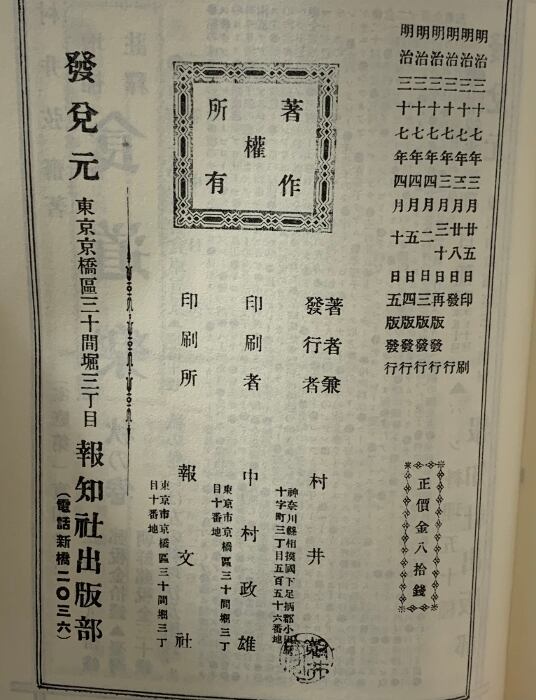 明治三十七年三月廿五日印刷
明治三十七年三月廿八日發行
明治三十七年三月三十日再版發行
明治三十七年四月二日三版發行
明治三十七年四月五日四版發行
明治三十七年四月十日五版發行
正價金八拾錢
著作
權
所有
著者兼
發行者
神奈川縣相摸國下足柄郡小田
十字町三丁目五百五十六番地
村井
印刷者
東京市京橋區三十間堀三丁
目十番地
中村政雄
印刷所
東京市京橋區三十間堀三丁
目十番地
報文社
發兌元 東京京橋區三十間堀三丁目 報知社出版部
(電話新橋二〇三六)